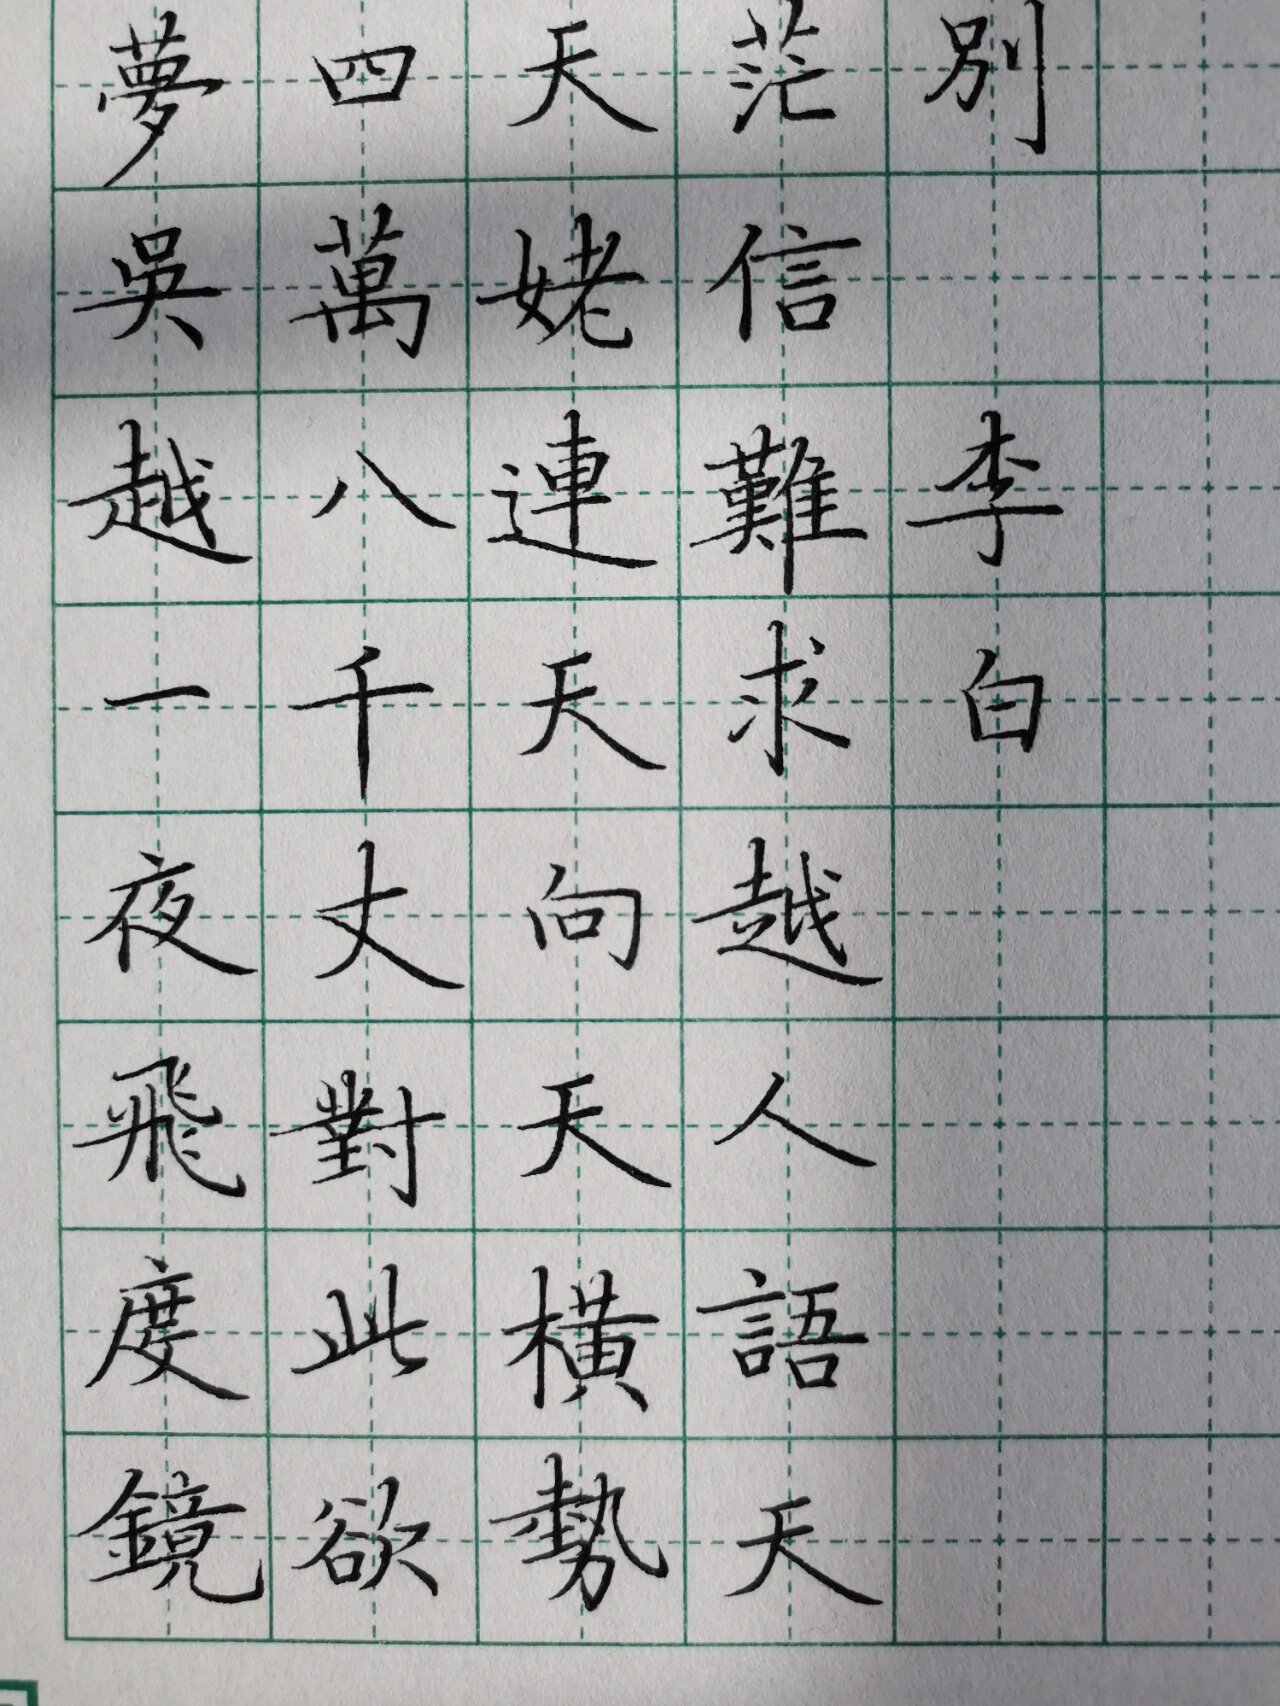 別 李白
茫信難求越人語天
天姥連天向天橫勢
四萬八千丈對此欲
夢吳越一夜飛度鏡